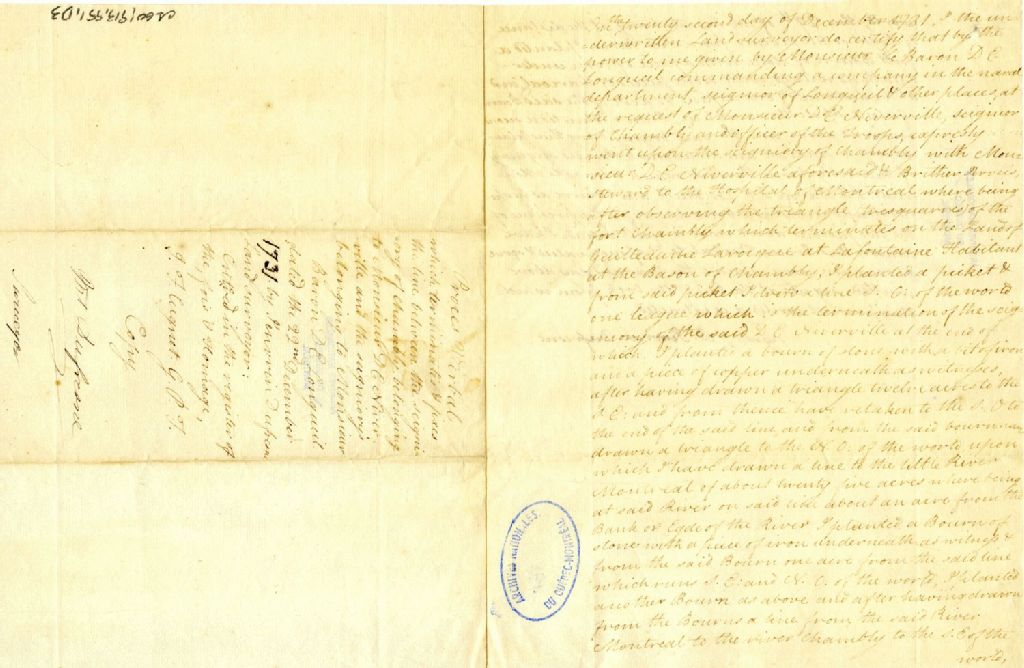 CA601,S13,SS1,D3
Procés Verbal
which terminates & fixes
the line between the seigni-
ory of Chambly belonging
to Monsieur D E Niver-
ville and the seigniory
belonging to Monsieur
Baron D E Longueuil
dated the 22nd December
1731 by Janvrin Dufresne
Land surveyor:
Cotted in the register of
the fois & Homage,
Copy
Mr Dufresne
ARCHIVES NATIONALES
DU QUÉBEC-MONTRÉAL
The twenty second day of December 1731. I the un-
derwritten Land surveyor do certify that by the
power to me given by Monsieur Le Baron D E
Longueil commanding a company in the naval
department, seignior of Longueil & other places, at
the request of Monsieur D E Niverville, seignior
of Chambly and officer of the Troops, expressly
went upon the seigniory of Chambly with Mon-
sieur D E Niverville aforesaid &
steward to the Hospital of Montreal where being
after observing the triangle of the
fort Chambly which terminates on the Land of
at Lafontaine Habitant
at the Bason of Chambly; I planted a picket &
from said picket I drew a line S. E: of the world
one league which is the termination of the seig-
niory of the said D. E Niverville at the end of
which, I planted a bourn of stone with a bit of iron
and a piece of copper underneath as witnesses,
after having drawn a triangle twelve acres to the
S E: and from thence have retaken to the S. O to
the end of the said line and from the said bourn
drawn a triangle to the N. O: of the world upon
which I have drawn a line to the little River
Montreal of about twenty five acres where being
at said River on said line about an acre from the
Bank or Edge of the River I planted a Bourn of
stone with a piece of iron underneath as witness &
from the said Bourn one acre from the said line
which runs S. E: and N. O. of the world, I planted
another Bourn as above and after having drawn
from the Bourns a line from the said River
Montreal to the river Chambly to the S. E of the
world,